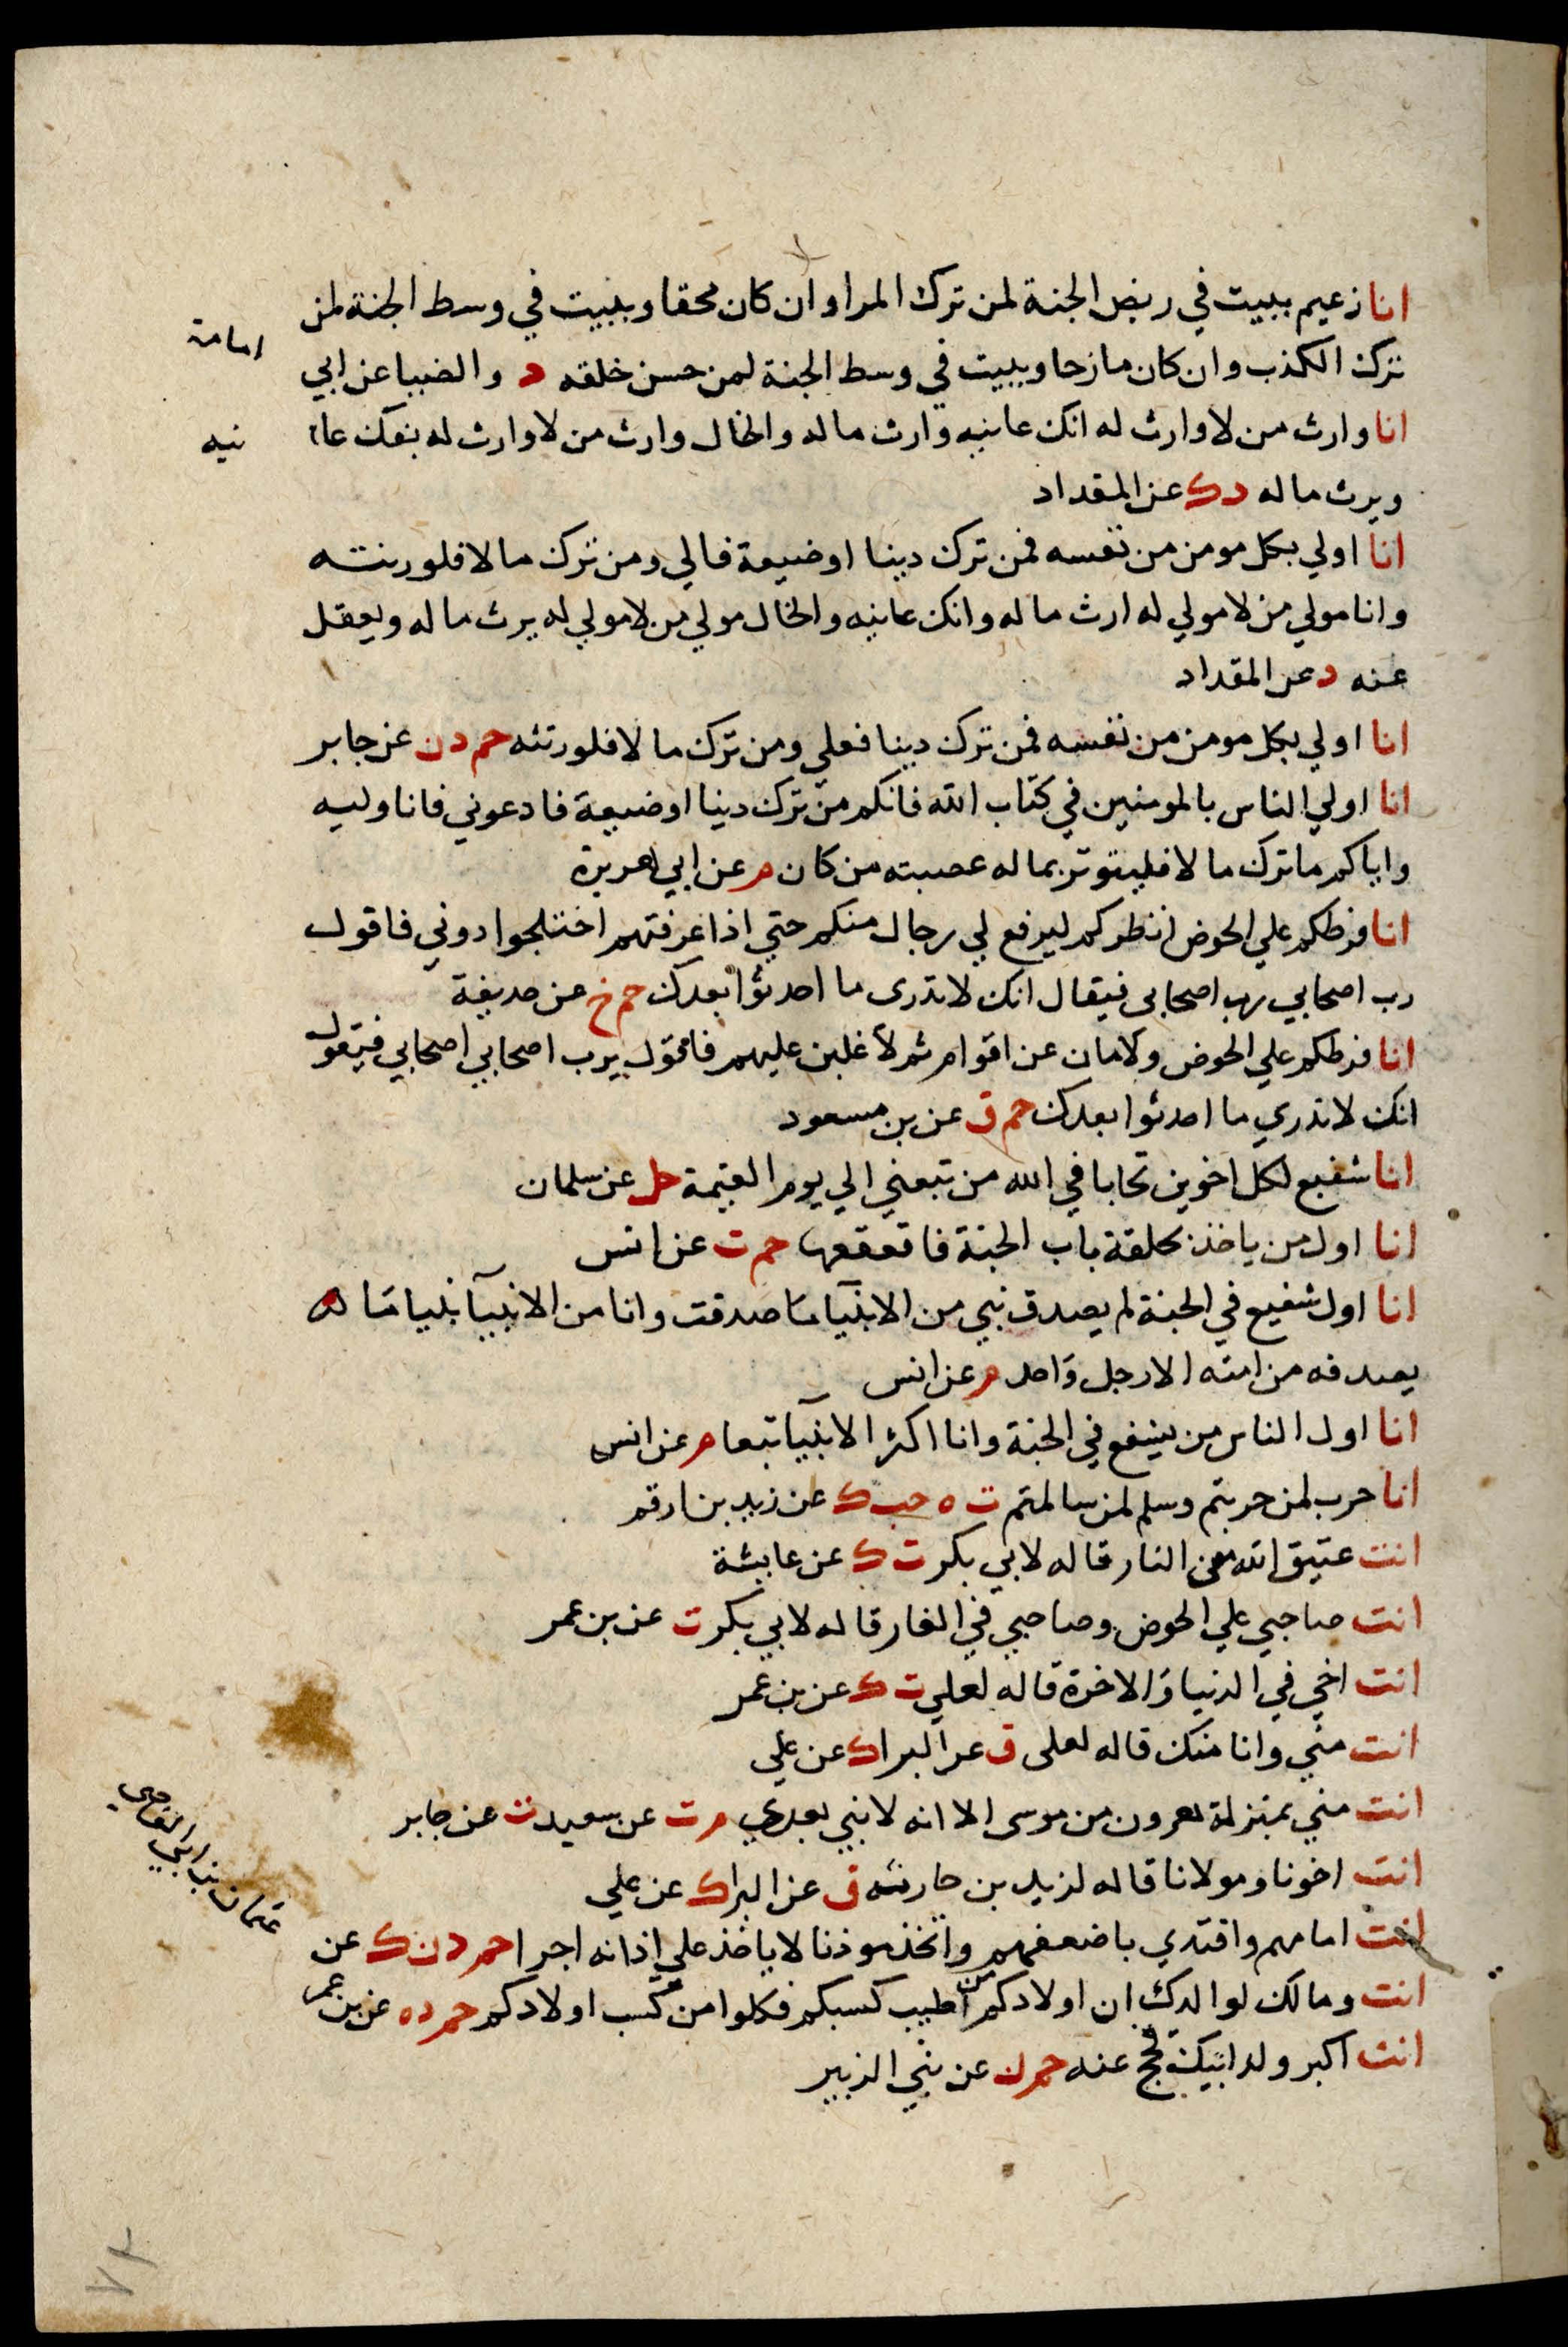 انا زعيم ببيت في ربض الجنة لمن ترك المرا وان كان محقا وببيت في وسط الجنة لمن
ترك الكذب وان كان مازحا وببيت في وسط الجنة لمن حسن خلقه د والضيا عن ابي
امامة
انا وارث من لا وارث له افك عانيه وارث ماله والخال وارث من لا وارث له يفك عا
نيه
ويرث ماله د ك عن المقداد
انا اولي بكل مومن من نفسه فمن ترك دينا او ضيعة فالي ومن ترك مالا فلورثته
وانا مولي من لا مولي له ارث ماله وافك عانيه والخال مولي من لا مولي له يرث ماله ويعقل
عنه د عن المقداد
انا اولي بكل مومن من نفسه فمن ترك دينا فعلي ومن ترك مالا فلورثته حم د ن عن جابر
انا اولي الناس بالمومنين في كتاب الله فانكم من ترك دينا او ضيعة فادعوني فانا وليه
واياكم ما ترك مالا فليوتر بماله عصبته من كان م عن ابي هريرة
انا فرطكم علي الحوض انتظركم ليرفع لي رجال منكم حتي اذا عرفتهم اختلجوا دوني فاقول
رب اصحابي رب اصحابي فيقال انك لا تدري ما احدثوا بعدك حم خ عن حديفة
انا فرطكم علي الحوض ولامان عن اقوام ثم لاغلبن عليهم فاقول يرب اصحابي اصحابي فيقول
انك لا تدري ما احدثوا بعدك حم ق عن بن مسعود
انا شفيع لكل اخوين تحابا في الله من تبعني الي يوم القيمة حل عن سلمان
انا اول من ياخذ بحلقة باب الجنة فاقعقعها حم ت عن انس
انا اول شفيع في الجنة لم يصدق نبي من الانبيا ما صدقت وانا من الانبيا نبيا ما
يصدقه من امته الا رجل واحد م عن انس
انا اول الناس من يشفع في الجنة وانا اكثر الانبيا تبعا م عن انس
انا حرب لمن حربتم وسلم لمن سالمتم ت ه حب ك عن زيد بن ارقم
انت عتيق الله من النار قاله لابي بكر ت ك عن عايشة
انت صاحبي علي الحوض وصاحبي في الغار قاله لابي بكر ت عن بن عمر
انت اخي في الدنيا والاخرة قاله لعلي ت ك عن بن عمر
انت مني وانا منك قاله لعلي ق عن البرا ك عن علي
انت مني بمنزلة هرون من موسى الا انه لا نبي بعدي م ت عن سعيد ت عن جابر
انت اخونا ومولانا قاله لزيد بن حارثه ق عن البرا ك عن علي
انت امامهم واقتدي باضعفهم واتخذ موذنا لا ياخذ علي اذانه اجرا حم د ن ك عن
عثمان بن ابي العاصي
انت ومالك لوالدك ان اولادكم من اطيب كسبكم فكلوا من كسب اولادكم حم د ه عن بن عمر
انت اكبر ولد ابيك فحج عنه حم ن عن بني الزبير
٧٢